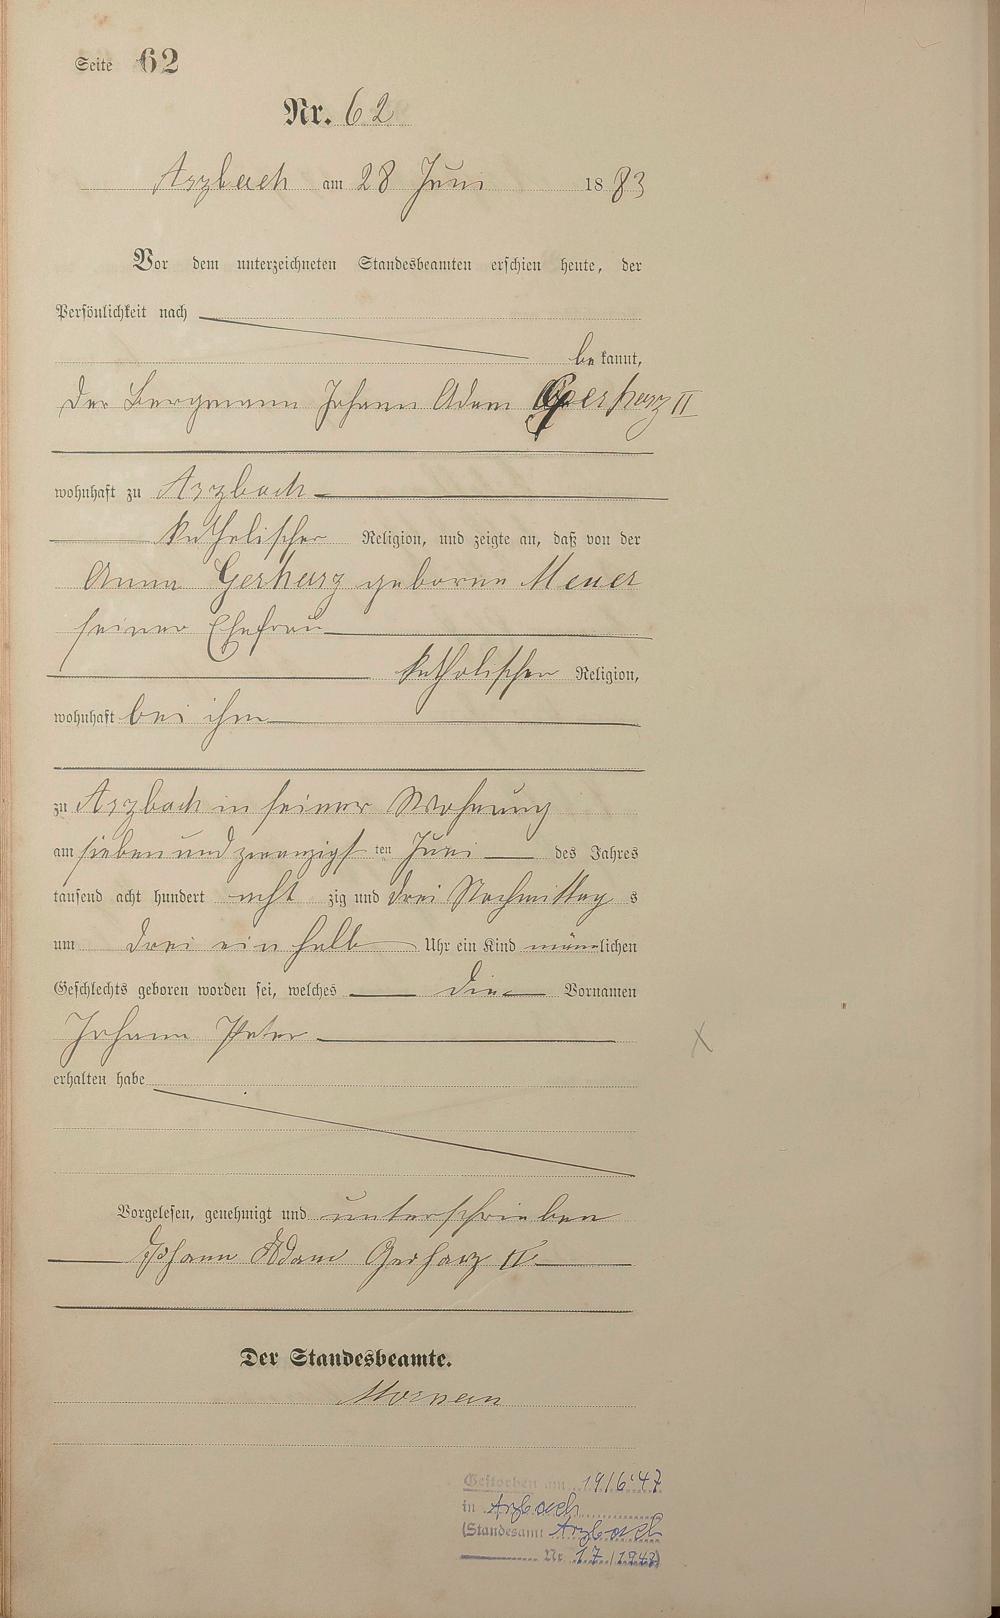 Seite 62
Nr. 62
Arzbach am 28 Juni 1883
Vor dem unterzeichneten Standesbeamten erschien heute, der
Persönlichkeit nach
bekannt,
der Bergmann Johann Adam Gerharz II
wohnhaft zu Arzbach
katholischer Religion, und zeigte an, daß von der
Anna Gerharz geborne Meuer
seiner Ehefrau
katholischen Religion,
wohnhaft bei ihm
zu Arzbach in seiner Wohnung
am sieben und zwanzigsten Juni des Jahres
tausend acht hundert achtzig und drei Nachmittags
um drei ein halb Uhr ein Kind männlichen
Geschlechts geboren worden sei, welches die Vornamen
Johann Peter
erhalten habe
Vorgelesen, genehmigt und unterschrieben
Johann Adam Gerharz II
Der Standesbeamte.
Gestorben am 19/6.47
in Arzbach
(Standesamt Arzbach
Nr. 17/1947)